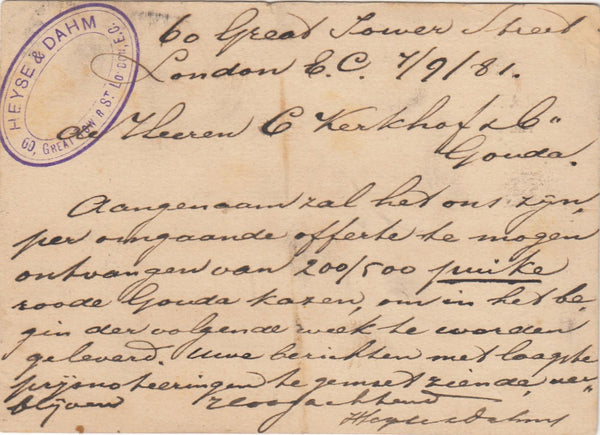 HEYSE & DAHM
60, GREAT TOWER ST. LONDON, E.C.
60 Great Tower Street
London E.C. 7/9/81.
de Heeren C Kerkhof & Co
Gouda.
Aangenaam zal het ons zijn,
per omgaande offerte te mogen
ontvangen van 200/500 puike
roode Gouda kazen, om in het be-
gin der volgende week te worden
geleverd. Uwe berichten met laagste
prijsnoteeringen te gemoet ziende, ver-
blijven Hoogachtend
Heyse & Dahm